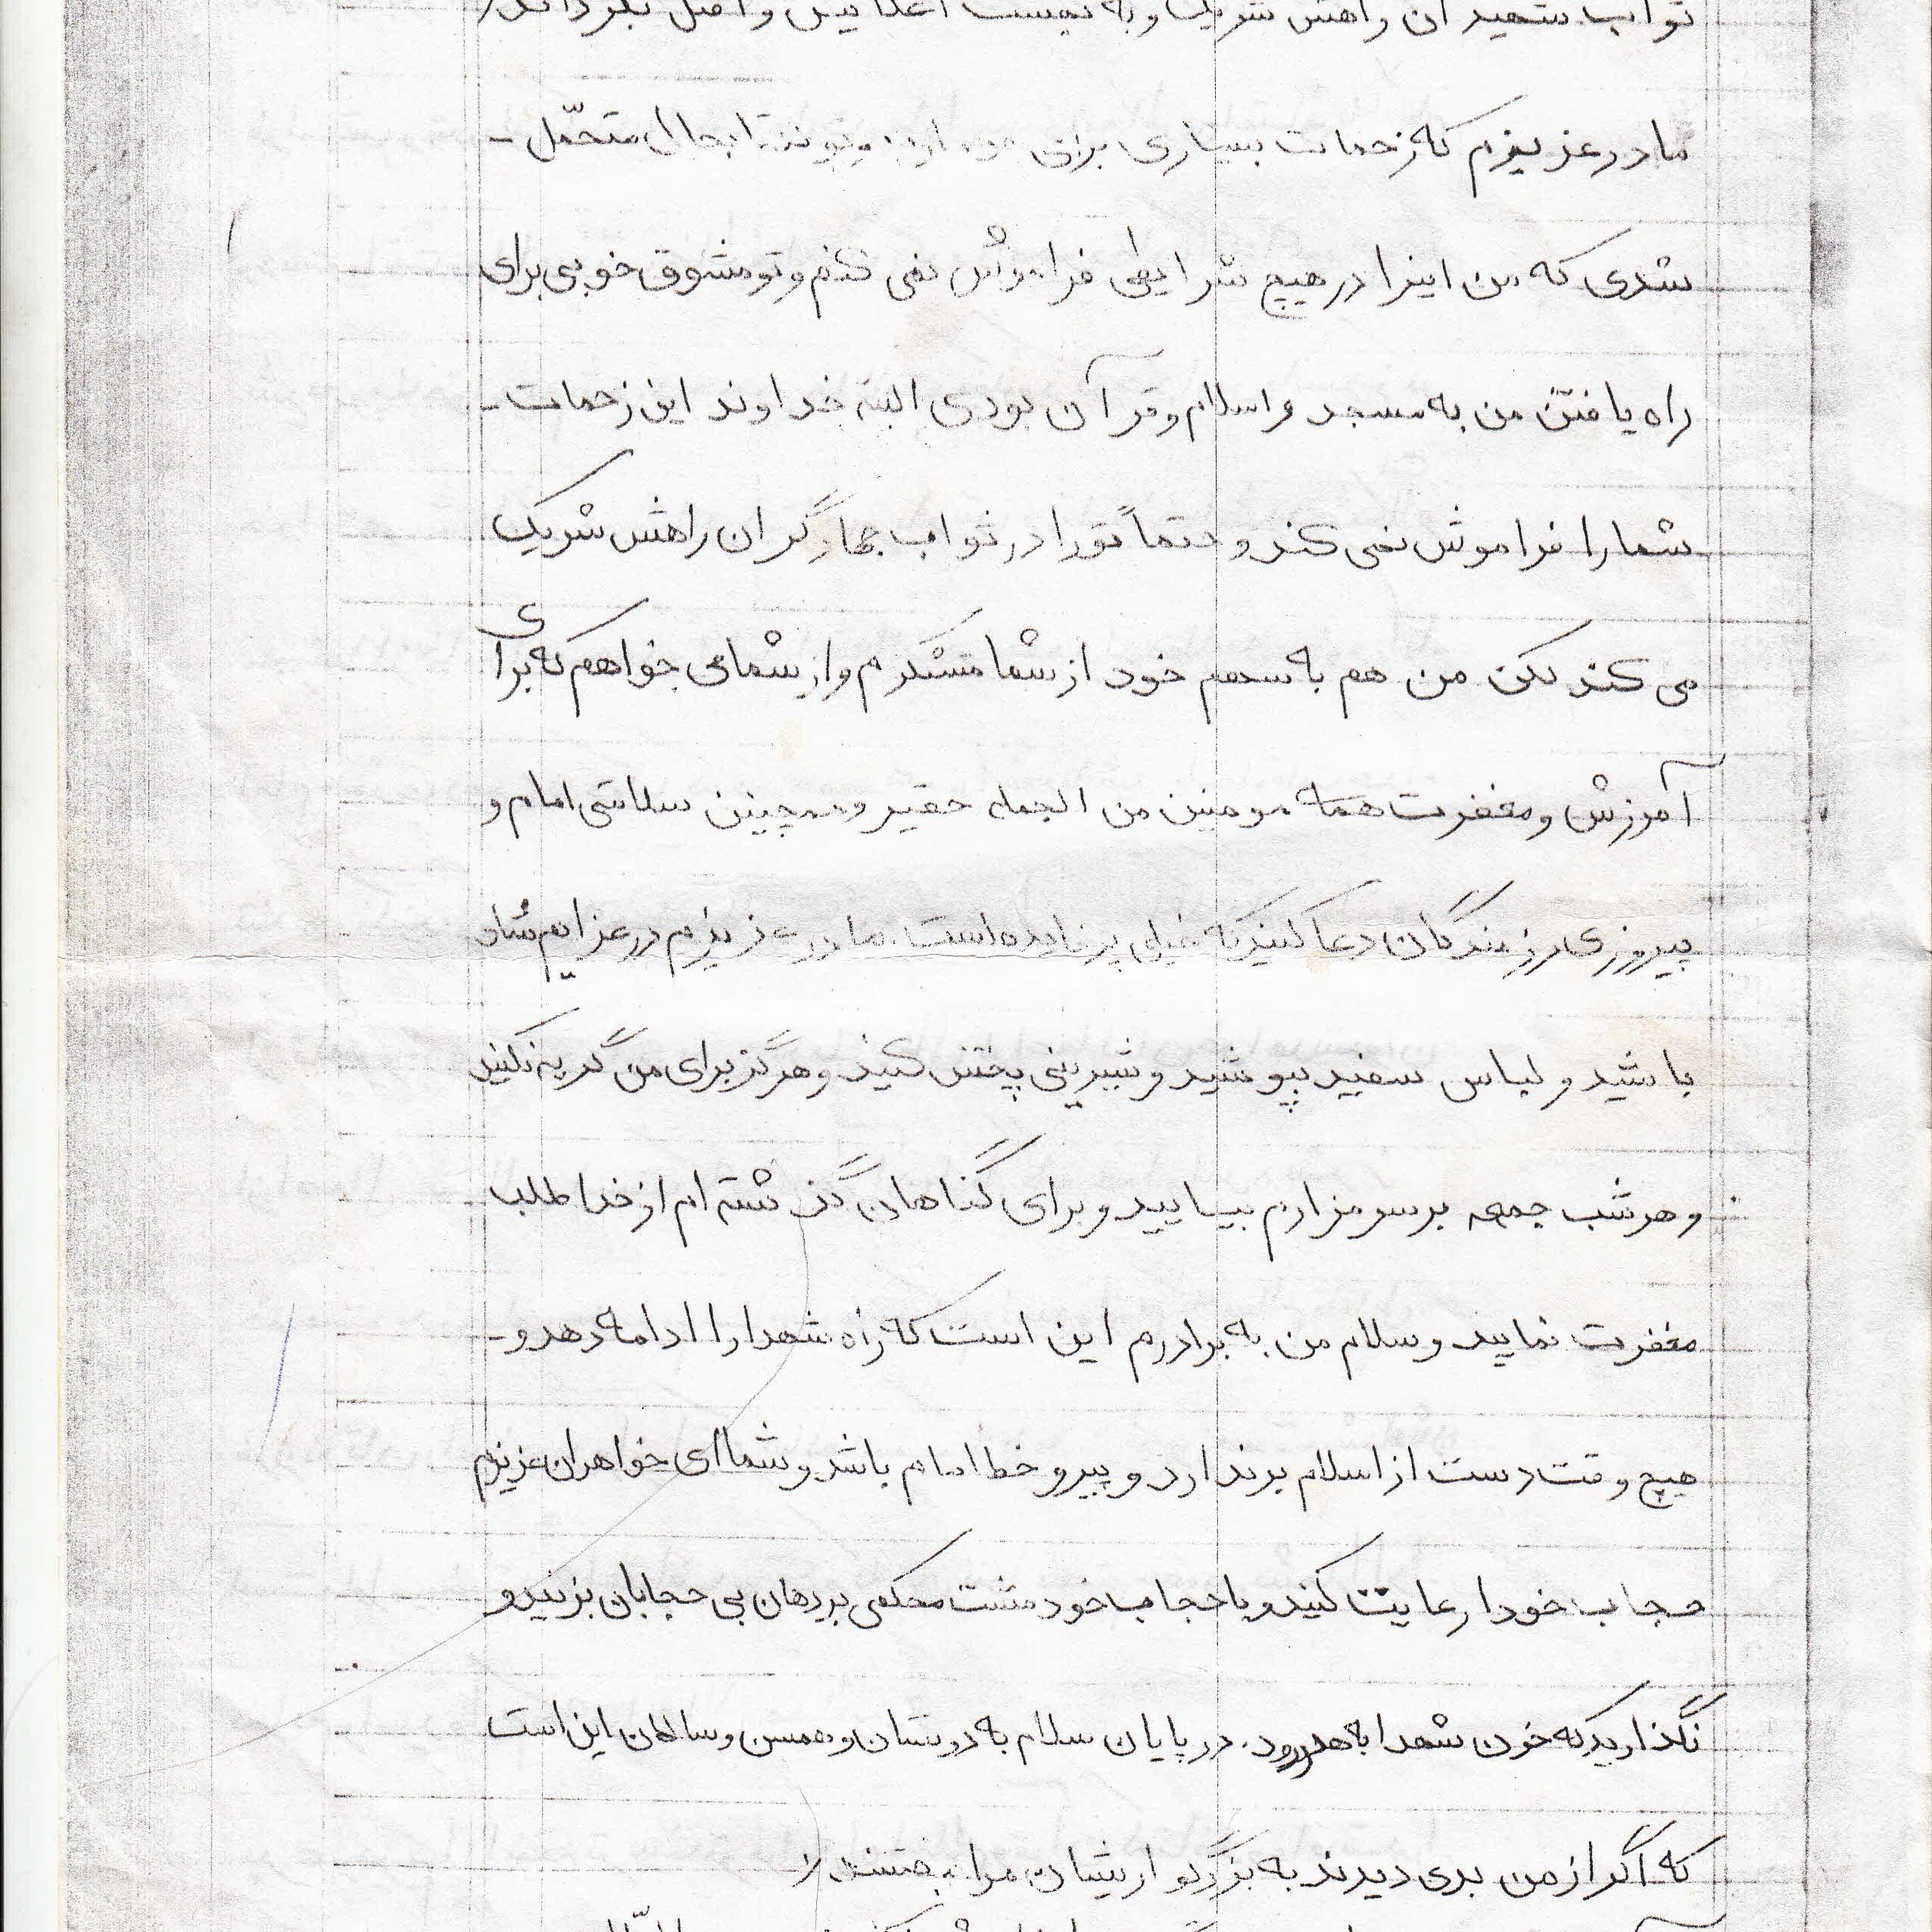 ثواب شهیدان راهش شریک و به بهشت اعلاییش واصل بگرداند
مادر عزیزم که زحمات بسیاری برای من تا بحال متحمّل -
شدی که من اینرا در هیچ شرایطی فراموش نمی کنم و تو مشوق خوبی برای
راه یافتن من به مسجد و اسلام و قرآن بودی البته خداوند این زحمات -
شما را فراموش نمی کند و حتماً تو را در ثواب جهادگران راهش شریک
می کند لکن من هم به سهم خود از شما متشکرم و از شما می خواهم که برای
آمرزش و مغفرت همه مومنین من الجمله حقیر و همچنین سلامتی امام و
پیروزی رزمندگان دعا کنید که خیلی پر فایده است. مادر عزیزم در عزایم شاد
باشید و لباس سفید بپوشید و شیرینی پخش کنید و هرگز برای من گریه نکنید
و هر شب جمعه بر سر مزارم بیایید و برای گناهان گذشته ام از خدا طلب
مغفرت نمایید و سلام من به برادرم این است که راه شهدا را ادامه دهد و -
هیچ وقت دست از اسلام برندارد و پیرو خط امام باشد و شما ای خواهران عزیزم
حجاب خود را رعایت کنید و با حجاب خود مشت محکمی بر دهان بی حجابان بزنید و
نگذارید که خون شهدا به هدر رود. در پایان سلام به دوستان و همسن و سالان این است
که اگر از من بدی دیدند به بزرگواریشان مرا ببخشند